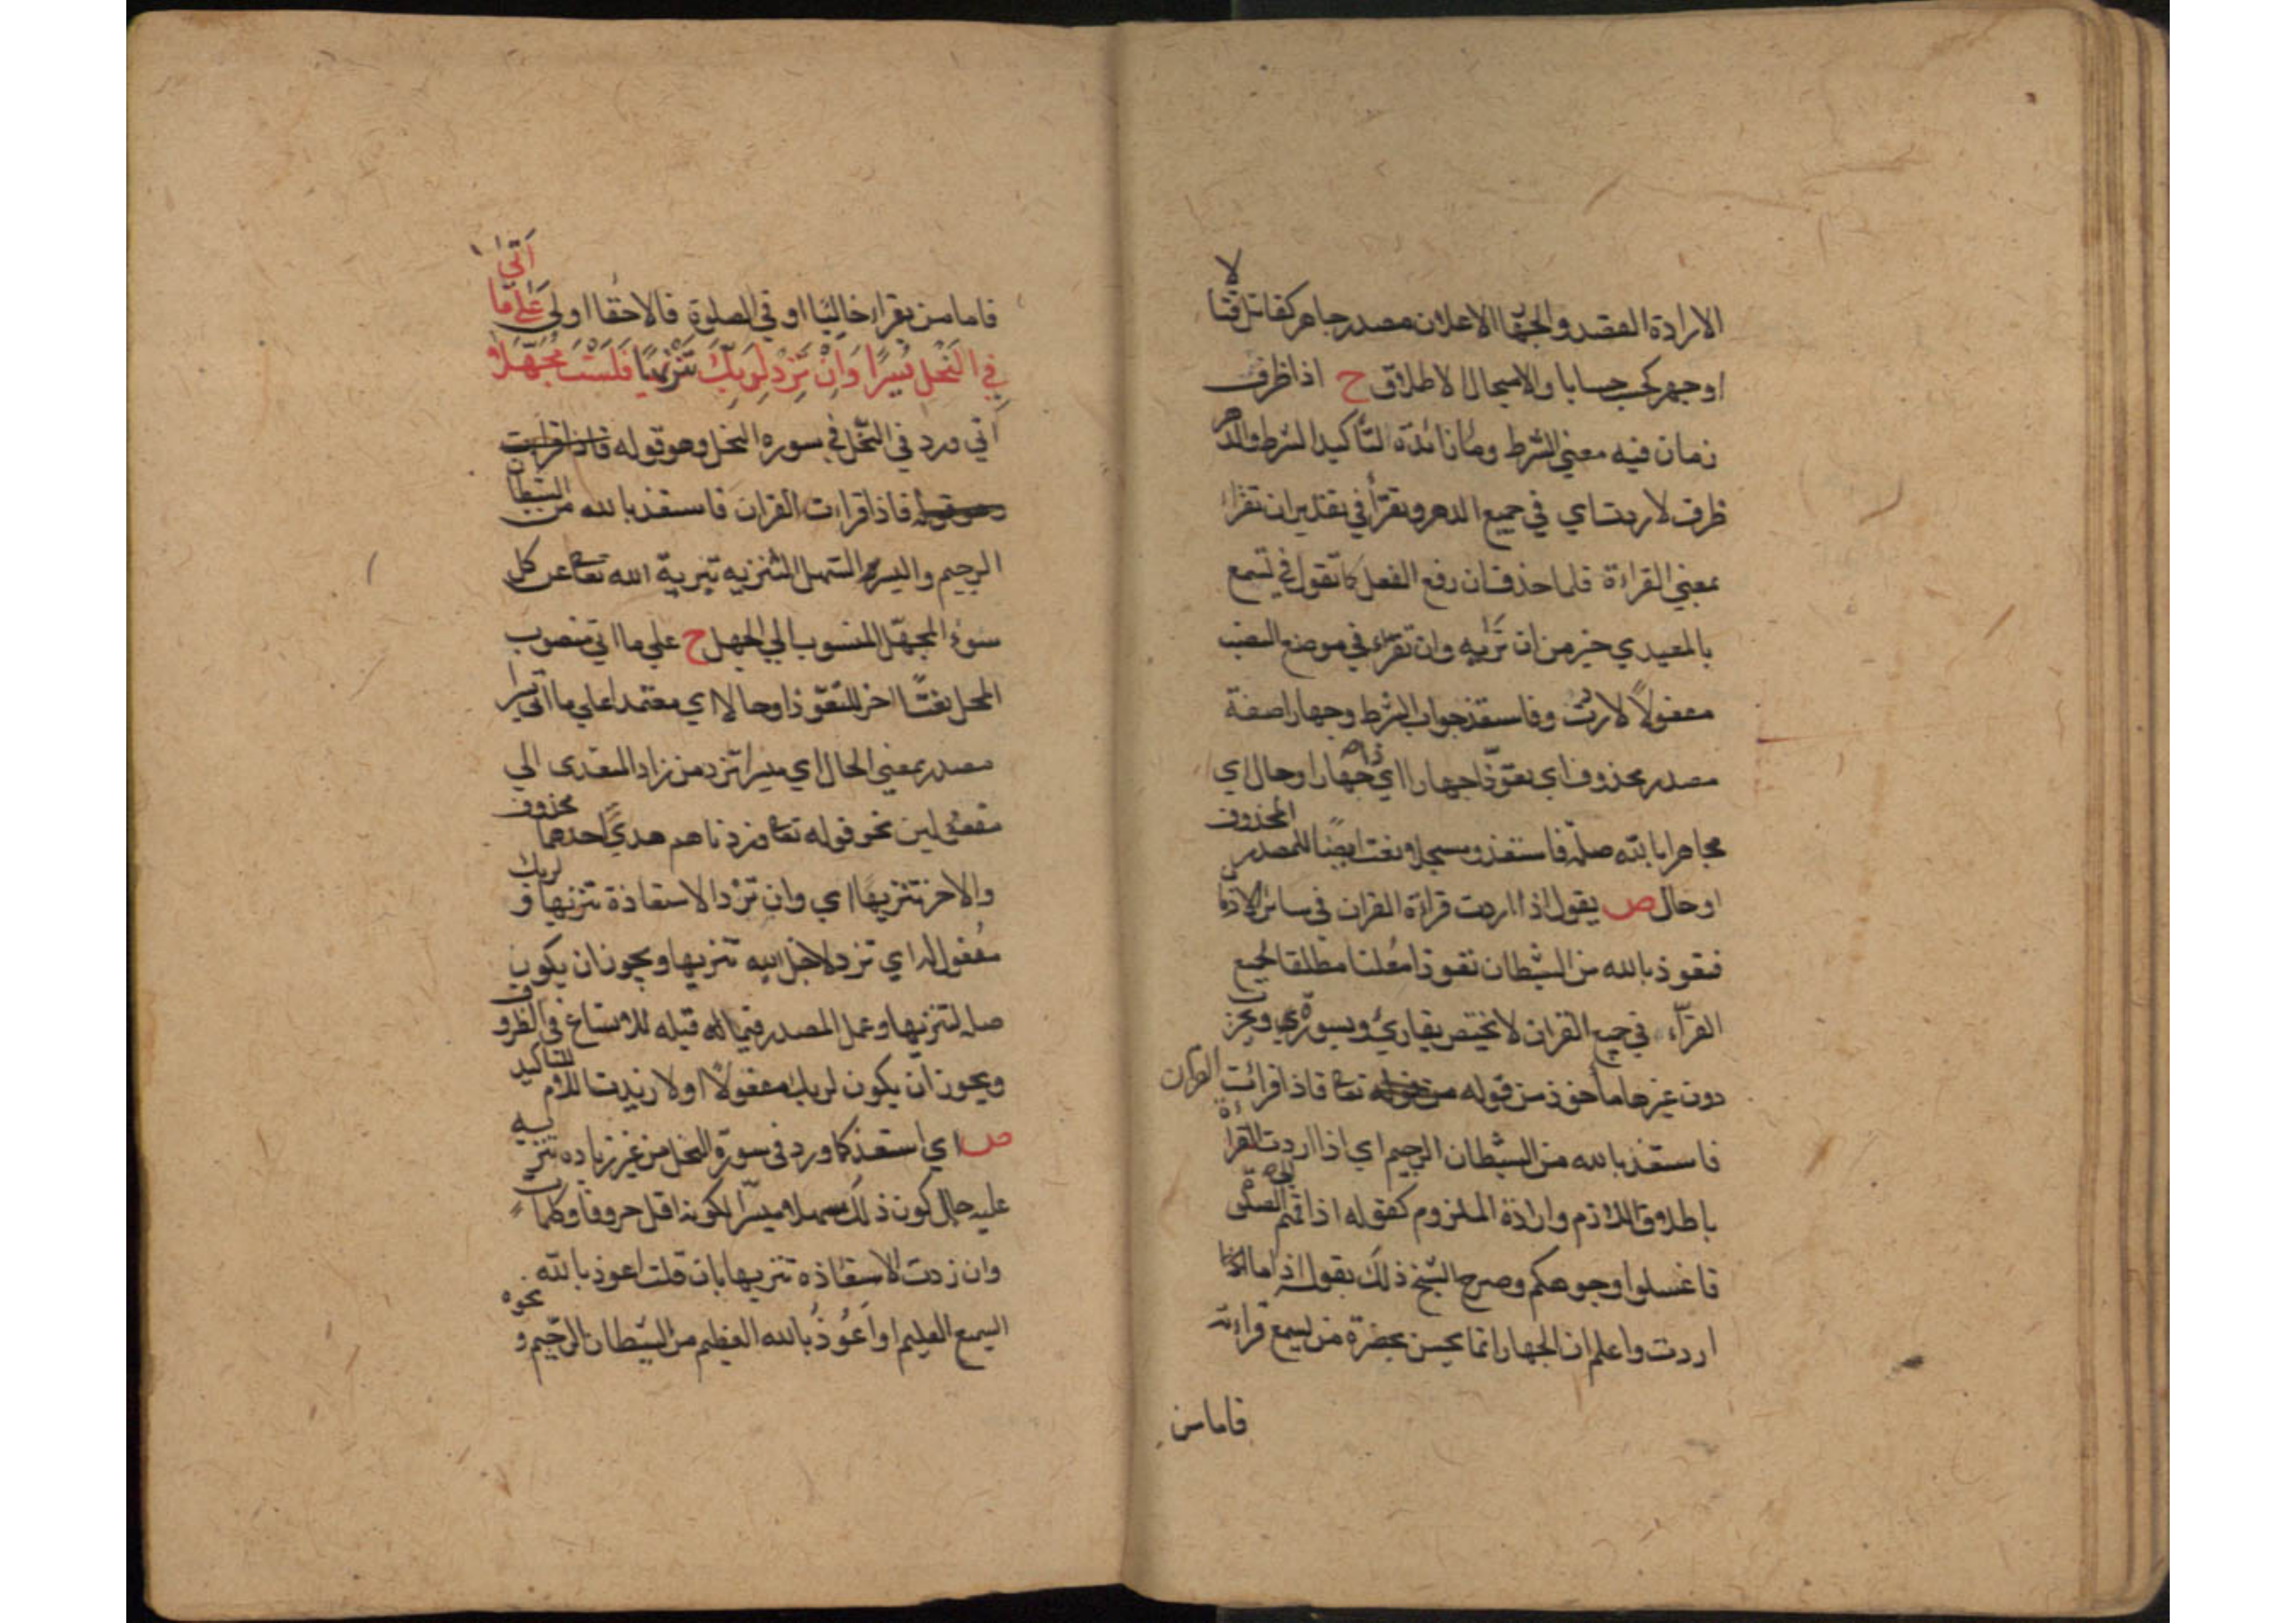 الارادة القصد والجهار الاعلان مصدر جاهر كقاتل قتالا
او جهر كحسب حسابا والاسجال الاطلاق ح اذا ظرف
زمان فيه معني الشرط وما زائدة لتأكيد الشرط والدهر
ظرف لاردت اي في جميع الدهر وتقرأ في تقدير ان تقرأ
بمعني القراءة فلما حذف ان رفع الفعل كما تقول في تسمع
بالمعيدي خير من ان تراه وان تقرء في موضع النصب
مفعولاً لاردت وفاستعذ جواب الشرط وجهارا صفة
مصدر محذوف اي تعوّذا جهارا اي ذا جهار او حال اي
مجاهرا بالله صلة فاستعذ ومسجلا نعت ايضا للمصدر المحذوف
او حال ص يقول اذا اردت قراءة القران في سائر الازمان
فتعوذ بالله من الشيطان تعوذا معلنا مطلقا لجميع
القرّاء في جميع القران لا يختص بقارئ وبسورة وبحزب
دون غيرها مأخوذ من قوله تعا فاذا قرائت القران
فاستعذ بالله من الشيطان الرجيم اي اذا اردت القراءة
باطلاق اللازم وارادة الملزوم كقوله اذا قمتم الي الصلوة
فاغسلوا وجوهكم وصرح الشيخ ذلك بقوله اذا ما
اردت واعلم ان الجهار انما يحسن بحضرة من يسمع قراءته
فاما من
فاما من يقرا خاليا او في الصلوة فالاخفا اولي عَلَي مَا أَتَي
فِي النَّحْلِ يُسْرًا وَاِنْ تَزِدْ لِرَبِّكَ تَنْزِيهًا فَلَسْتَ مُجَهَّلَا
أتي ورد في النحل في سورة النحل وهو قوله فاذا قرات
وهو قوله فاذا قراءت القران فاستعذ بالله من الشيطان
الرجيم واليسر السهل التنزيه تبرية الله تعا عن كل
سوء المجهّل المنسوب الي الجهل ح علي ما اتي منصوب
المحل نعتا اخر للتعوّذ او حالا اي معتمدا علي ما اتي يسرا
مصدر بمعني الحال اي ميسرا تزد من زاد المتعدى الي
مفعولين نحو قوله تعا وزدناهم هديً احدهما محذوف
والاخر تنزيها اي وان تزد الاستعاذة تنزيها ولربك
مفعول له اي تزد لاجل الله تنزيها ويجوز ان يكون
صلة لتنزيها وعمل المصدر فيما قبله للاتساع في الظروف
ويجوز ان يكون لربك مفعولاً اولا زيدت اللام للتاكيد
ص اي استعذ كما ورد في سورة النحل من غير زيادة تنزيه
عليه حال كون ذلك سهلا ميسّرا لكونه اقل حروفا وكلمات
وان زدت الاستعاذة تنزيها بان قلت اعوذ بالله
السميع العليم او اَعُوذُ بالله العظيم من الشيطان الرجيم ونحوه